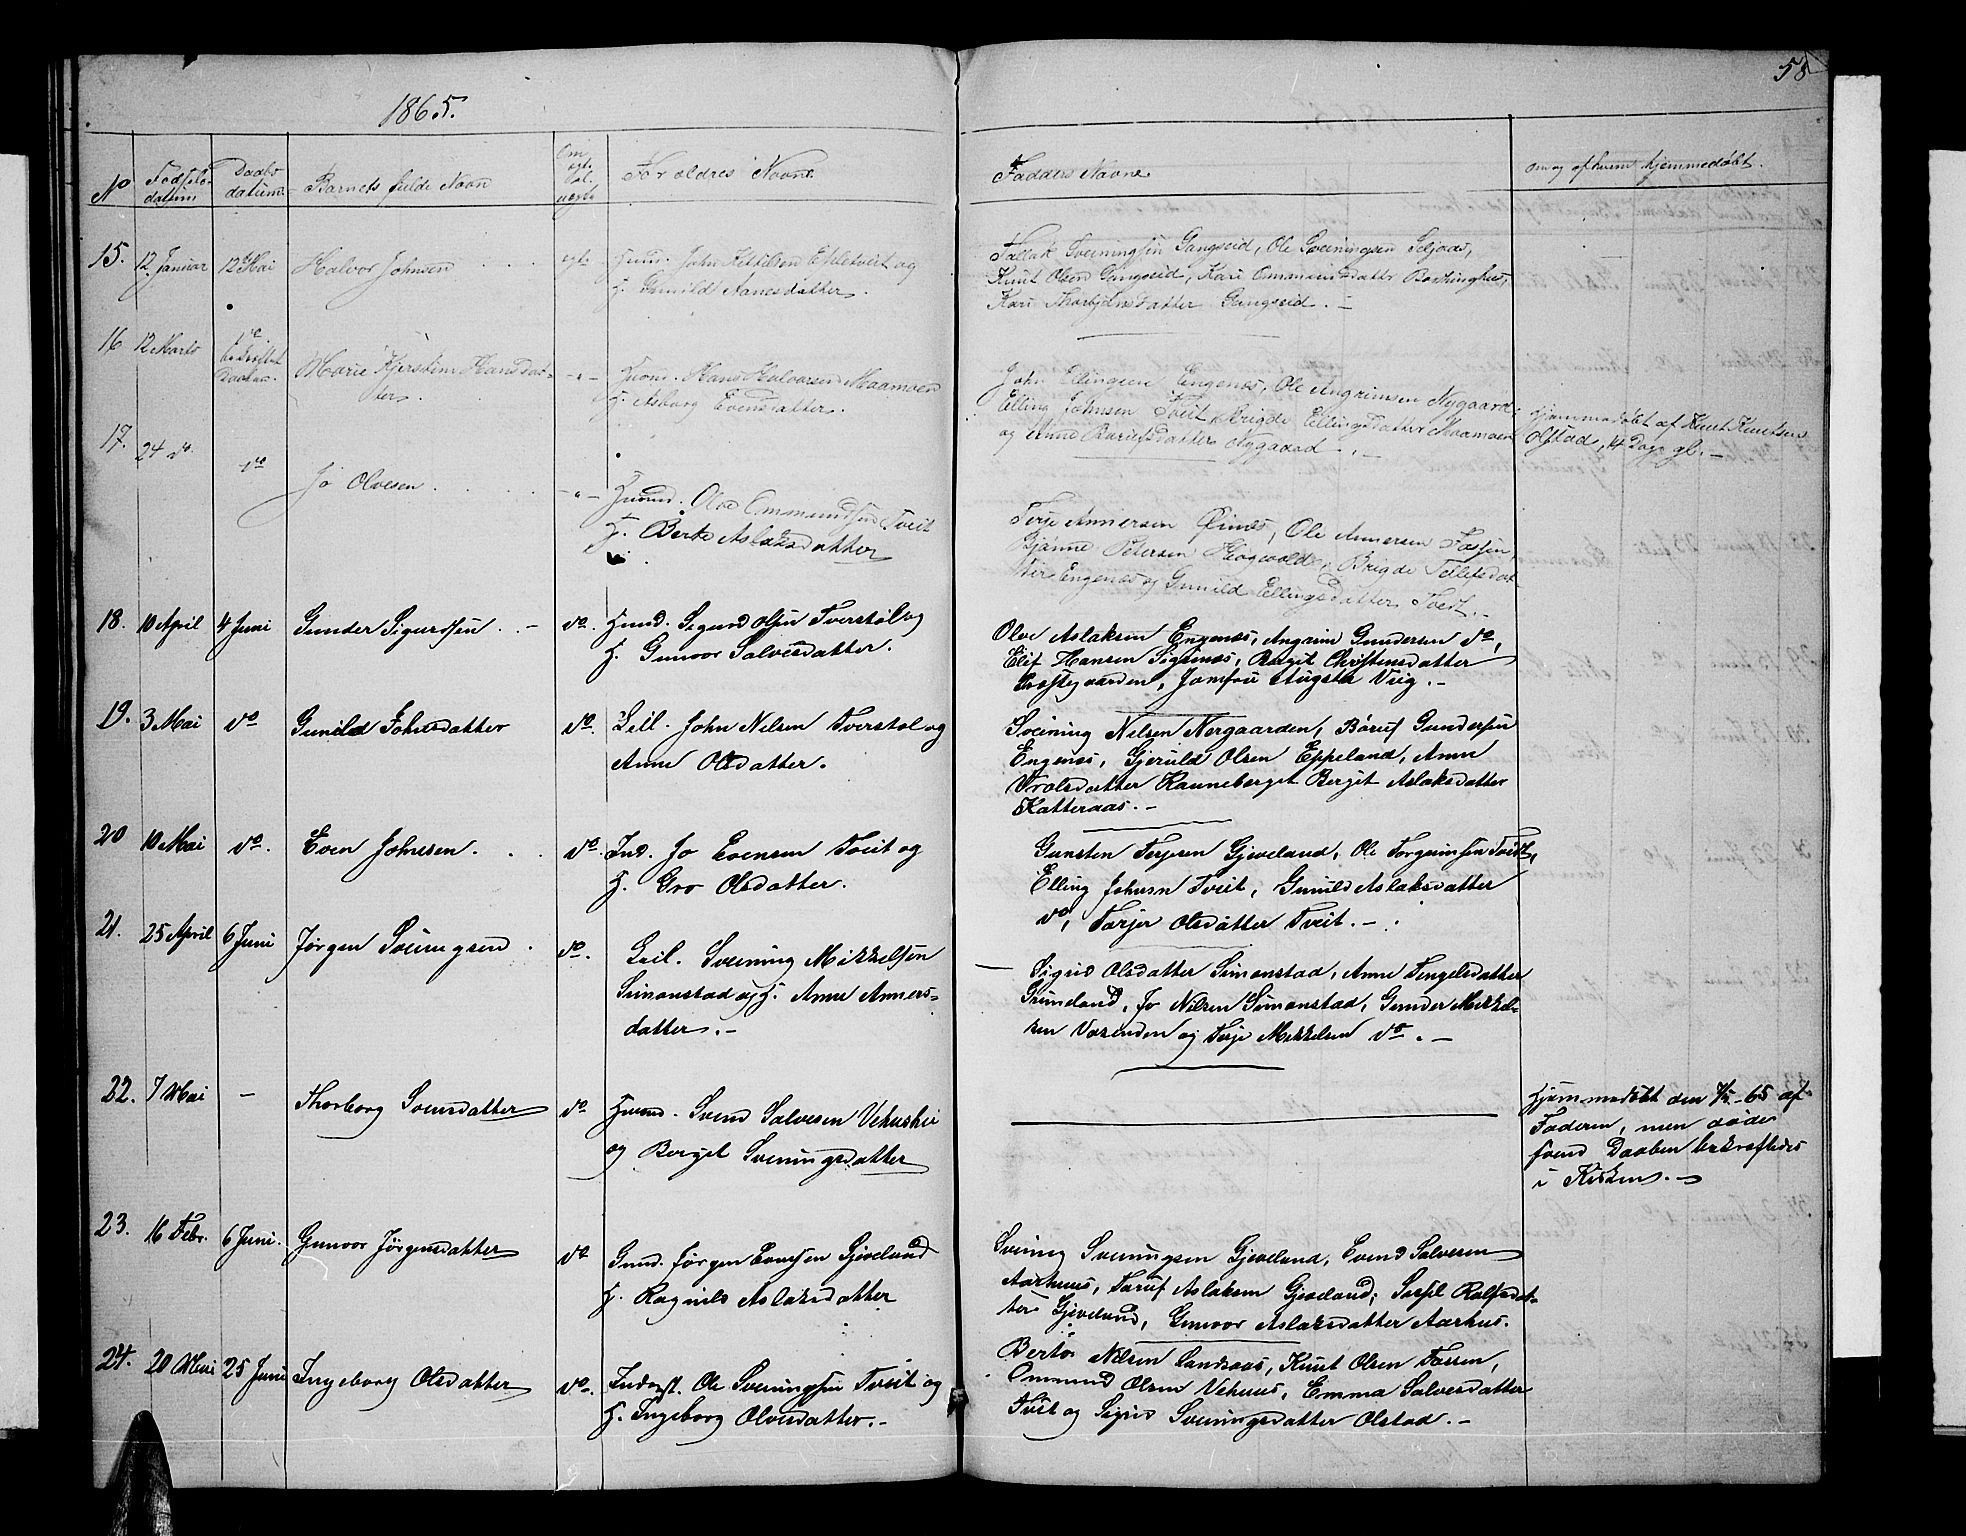 58
1865.
No
Fødsels-
datum
Daabs
datum
Barnets fulde Navn
Om
egte
el.
uegte
Forældres Navne
Faddres Navne
om og af hvem hjemmedøbt.
15. 12 Januar 12 Mai Halvor Johnsen egte Huusd. John Kittelsen Epletveit og
H. Gunild Aanesdatter.
Tallak Sveiningsen Gangseid, Ole Sveiningsen Seljaas,
Knut Olsen Gangseid, Kari Ommunsdatter
Kari Thorbjørnsdatter Gangseid. -
16 12 Marts do bekræftet Daaben Marie Kjerstine Hansdat-
ter.
-"- Huusm. Hans Halvorsen Maamoen
H. Asborg Evensdatter.
John Ellingsen Engenes, Ole Angrimsen Nygaard,
Elling Johnsen Tveit, Brigde Ellingsdatter Maamoen
og Anne Barufsdatter Nygaard. -
Hjemmedøbt af Knut Knutsen
Olstad, 14 Dage gl. -
17. 24 do do Jo Olvesen -"- Huusmd. Olve Ommundsen Tveit
H. Berte Aslaksdatter
Terje Annersen Øines, Ole Annersen Fossen,
Bjønne Petersen, Brigde Tellefsdat-
ter Engenes og Gunild Ellingsdatter Tveit. -
18. 10 April 4 Juni Gunder Sigurdsen. - do. Huusd. Sigurd Olsen Tverstøl og
H. Gunvor Salvesdatter.
Olve Aslaksen Engenes, Angrim Gundersen do,
Elif Hansen Sigenes, Birgit Christensdatter
Præstegaarden, Jomfru Augsta Viig. -
19. 3 Mai do Gunild Johnsdatter do. Leil. John Nilsen Tverstøl og
Anne Olsdatter.
Sveining Nilsen Nergaarden, Baruf Gundersen
Engenes, Gjeruld Olsen Eppeland, Anne
Vrolsdatter Ranneberget Berget Aslaksdatter
Katteraas. -
20 10 Mai do. Even Johnsen. do. Ind. Jo Evensen Tveit og
H. Gro Olsdatter.
Gunsten Terjesen Gjeveland, Ole Torgrimsen Tveit,
Elling Johnsn Tveit, Gunild Aslaksdatter
do, Tarjer Olsdatter Tveit. -
21. 25 April 6 Juni Jørgen Sveiningsen. do. Leil. Sveining Mikkelsen
Simonstad og H. Anne Anners-
datter. -
Sigrid Olsdatter Simonstad, Anne Tengelsdatter
Grimeland, Jo Nilsen Simonstad, Gunder Mikkel-
sen Vasenden og Terje Mikkelsen do. -
22. 7 Mai - Thorborg Svensdatter do Huusmd. Svend Salvesen Vehushei
og Berget Sveningsdatter
Hjemmedøbt den 7/5 -65 af
Faderen, men døde
førend Daaben bekræftedes
i Kirken. -
23. 16 Febr. 6 Juni. Gunvor Jørgensdatter do Gmd. Jørgen Evensen Gjeveland
H. Ragnild Aslaksdatter
Svening Sveningsen Gjeveland, Evend Salvesen
Aarhuus, Taruf Aslaksen Gjeveland, Sissel Rolfsdat-
ter Gjeveland, Gunvor Aslaksdatter Aarhus.
24. 20 Mai 25 Juni Ingeborg Olsdatter do. Inderst. Ole Sveningsen Tveit og
H. Ingeborg Olvesdatter. -
Berto Nilsen Landsaas, Knut Olsen Fossen,
Ommund Olsen Vehuus, Emma Salvesdatter
Tveit og Sigrid Sveningsdatter Olstad. -